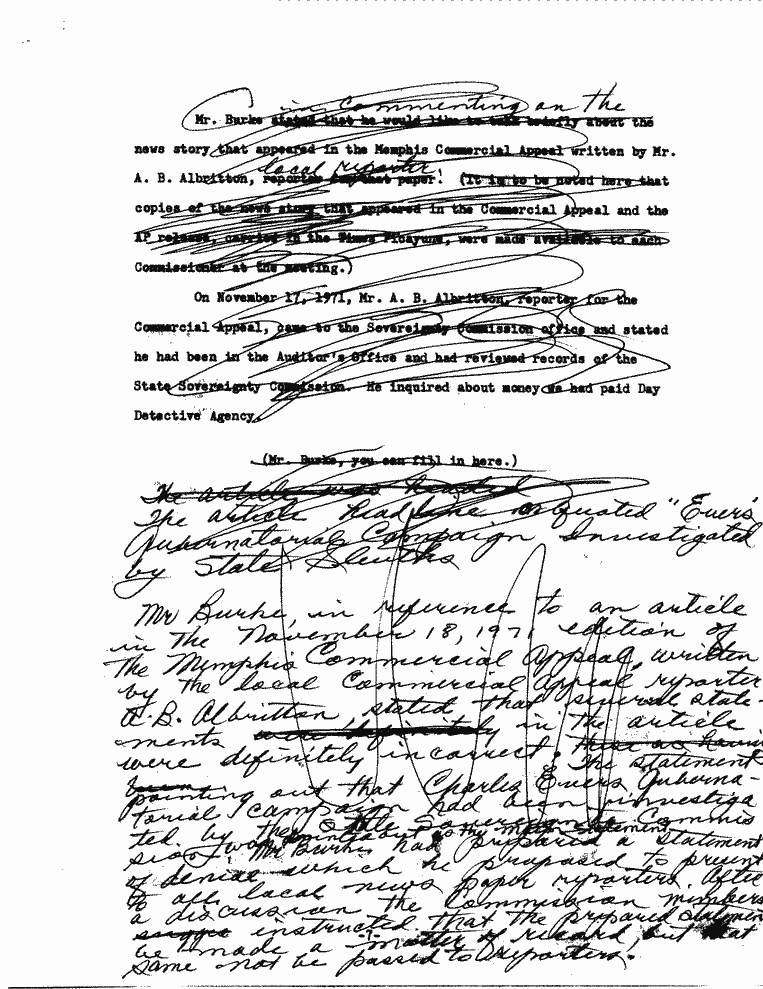 in commenting on the
Mr. Burke stated that he would like to talk briefly about the
news story that appeared in the Memphis Commercial Appeal written by Mr.
local reporter!
A. B. Albritton, reporter for that paper. (It is to be noted here that
copies of the news story that appeared in the Commercial Appeal and the
AP release, carried in the Times Picayune, were made available to each
Commissioner at the meeting.)
On November 17, 1971, Mr. A. B. Albritton, reporter for the
Commercial Appeal, came to the Sovereignty Commission office and stated
he had been in the Auditor's Office and had reviewed records of the
State Sovereignty Commission. He inquired about money we had paid Day
Detective Agency.
(Mr. Burke, you can fill in here.)
The article was headed
The article headline quoted "Evers
Gubernatorial Campaign Investigated
by State Sleuths
Mr Burke, in reference to an article
in the November 18, 1971 edition of
the Memphis Commercial Appeal, written
by the local Commercial Appeal reporter
A.B. Albritton, stated that several state-
ments were definitely in the article
were definitely incorrect. The statement
pointing out that Charles Evers Guberna-
torial campaign had been investiga
ted by the State Sovereignty Commis
sion was the main statement
Mr Burke had prepared a statement
of denial which he proposed to present
to all local news paper reporters. After
a discussion the Commission members
instructed that the prepared statement
be made a matter of record, but that
same not be passed to reporters.